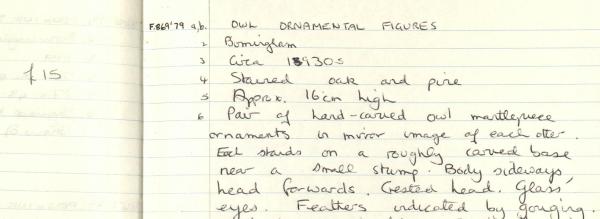 F.869'79 a/b. OWL ORNAMENTAL FIGURES
2 Birmingham
3 Circa 1930s
£15
4 Stained oak and pine
5 Approx. 16cm high
6 Pair of hard-carved owl mantlepiece
ornaments in mirror image of each other.
Each stands on a roughly carved base
near a small stump. Body sideways,
head forwards. Crested head. Glass
eyes. Feathers indicated by gouging.